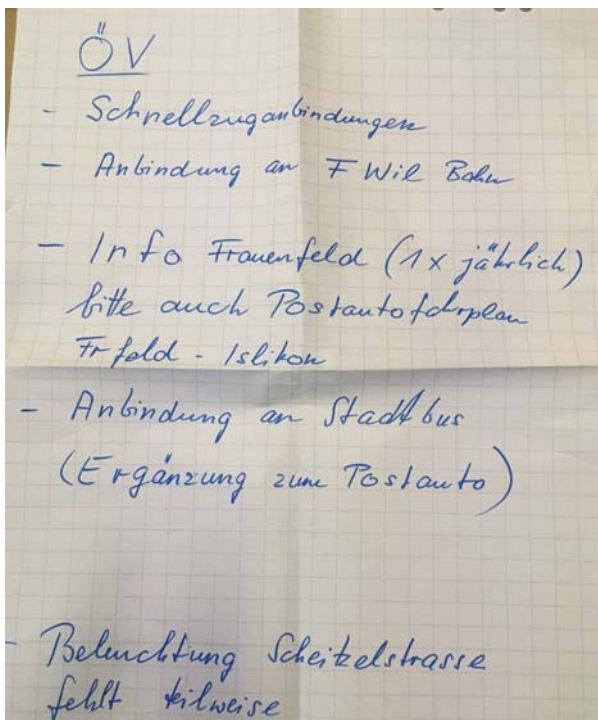 ÖV
- Schnellzuganbindungen
- Anbindung an F Wil Bahn
- Info Frauenfeld (1x jährlich)
bitte auch Postautofahrplan
Frfeld - Islikon
- Anbindung an Stadtbus
(Ergänzung zum Postauto)
- Beleuchtung Scheitzelstrasse
fehlt teilweise